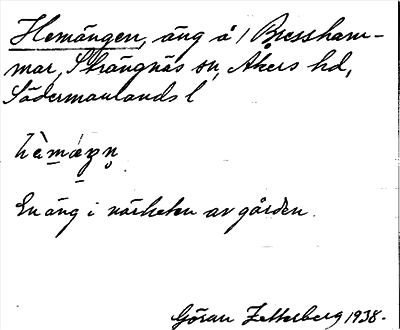 Hemängen, äng å 1 Bresshammar,
mar, Strängnäs sn, Åkers hd,
Södermanlands l
En äng i närheten av gården.
Göran Zetterberg 1938.